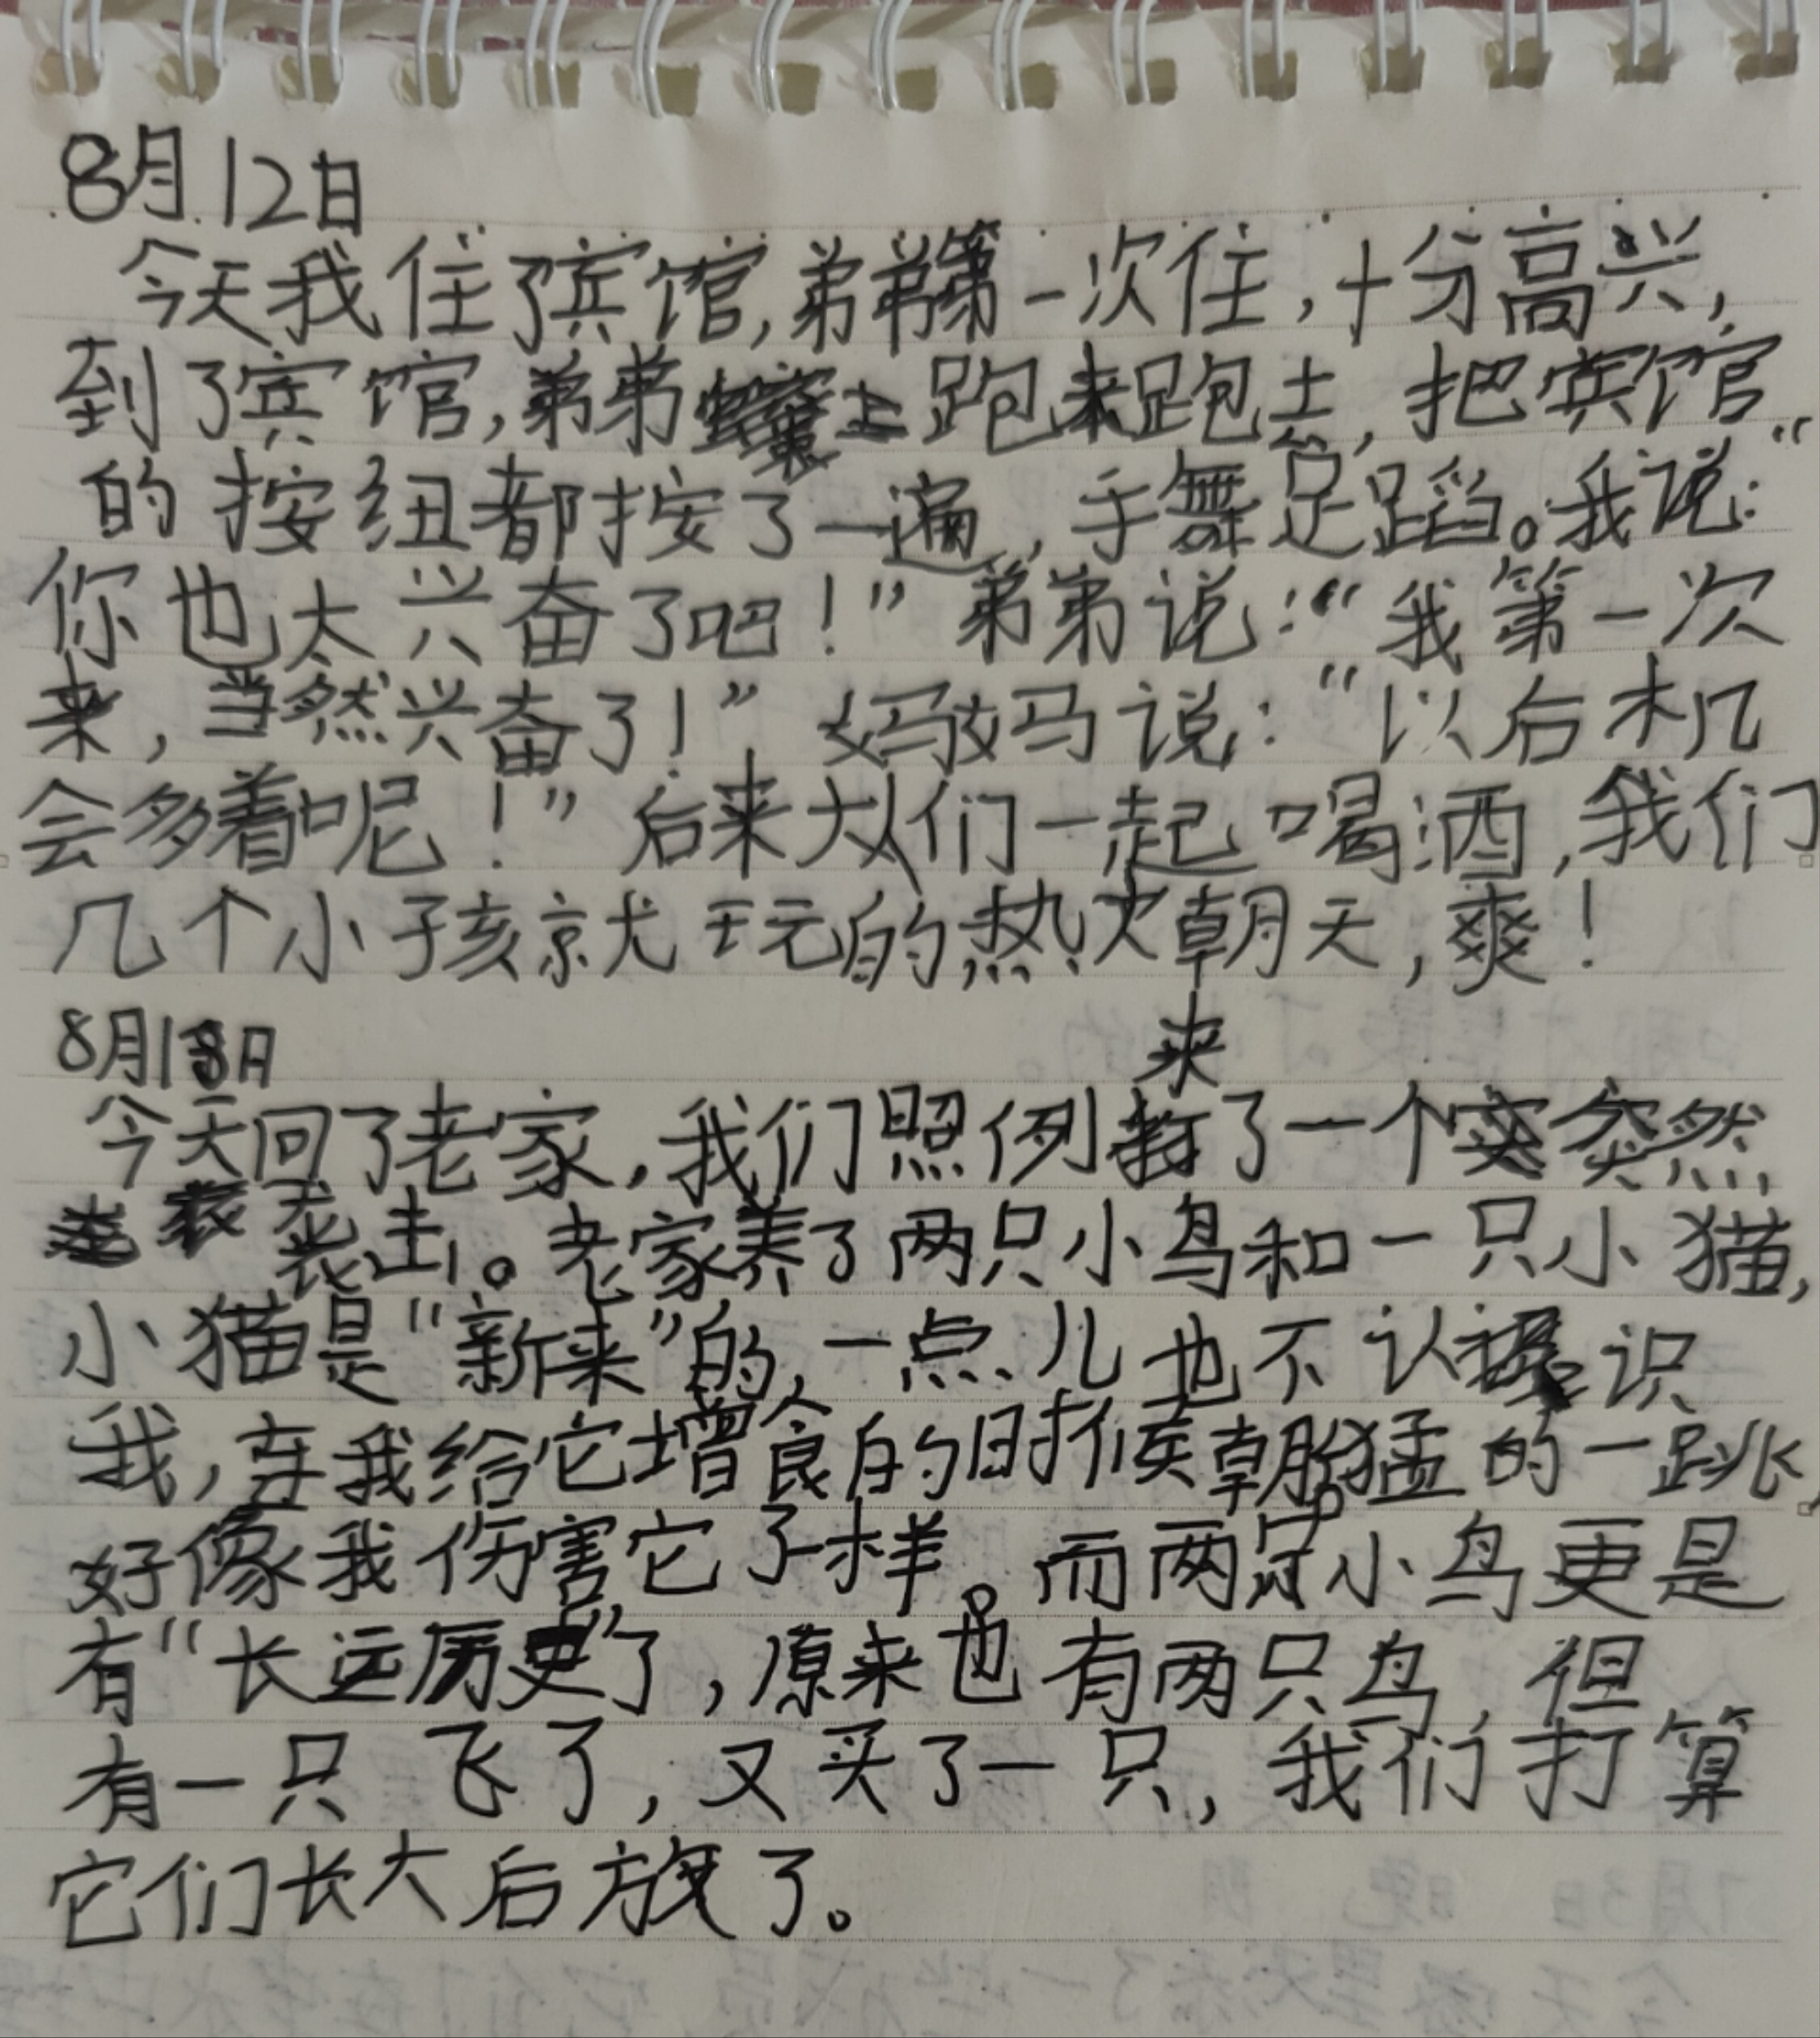 8月12日
今天我住了宾馆,弟弟第一次住,十分高兴,
到了宾馆,弟弟跑来跑去,把宾馆
的按纽都按了一遍,手舞足蹈。我说:“
你也太兴奋了吧!”弟弟说:“我第一次
来,当然兴奋了!”妈妈说:“以后机
会多着呢!”后来大人们一起喝酒,我们
几个小孩就玩的热火朝天,爽!
8月13日
来
今天回了老家,我们照例了一个突然
袭击。老家养了两只小鸟和一只小猫,
小猫是“新来”的,一点儿也不认识
我,在我给它增食的时候朝我猛的一跳,
好像我伤害它了一样。而两只小鸟更是
有“长远历史”了,原来也有两只鸟,但
有一只飞了,又买了一只,我们打算
它们长大后放了。